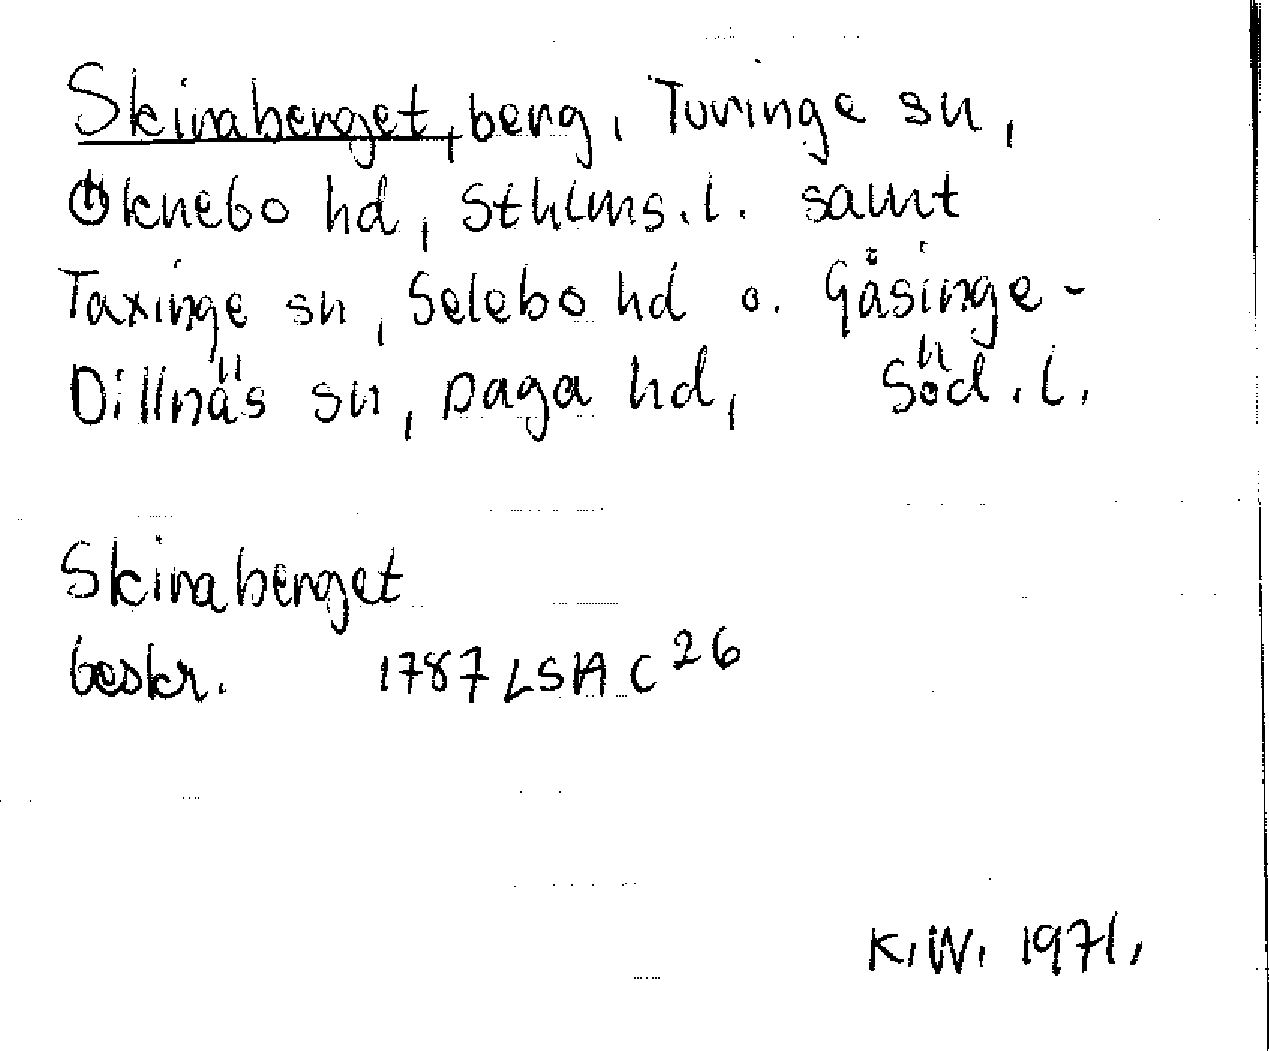 Skiraberget, berg, Turinge sn,
Öknebo hd, Sthlms. l. samt
Taxinge sn, Selebo hd o. Gåsinge-
Dillnäs sn, Daga hd, Söd. l.
Skiraberget
beskr. 1787 LSA C 26
K.W. 1971.